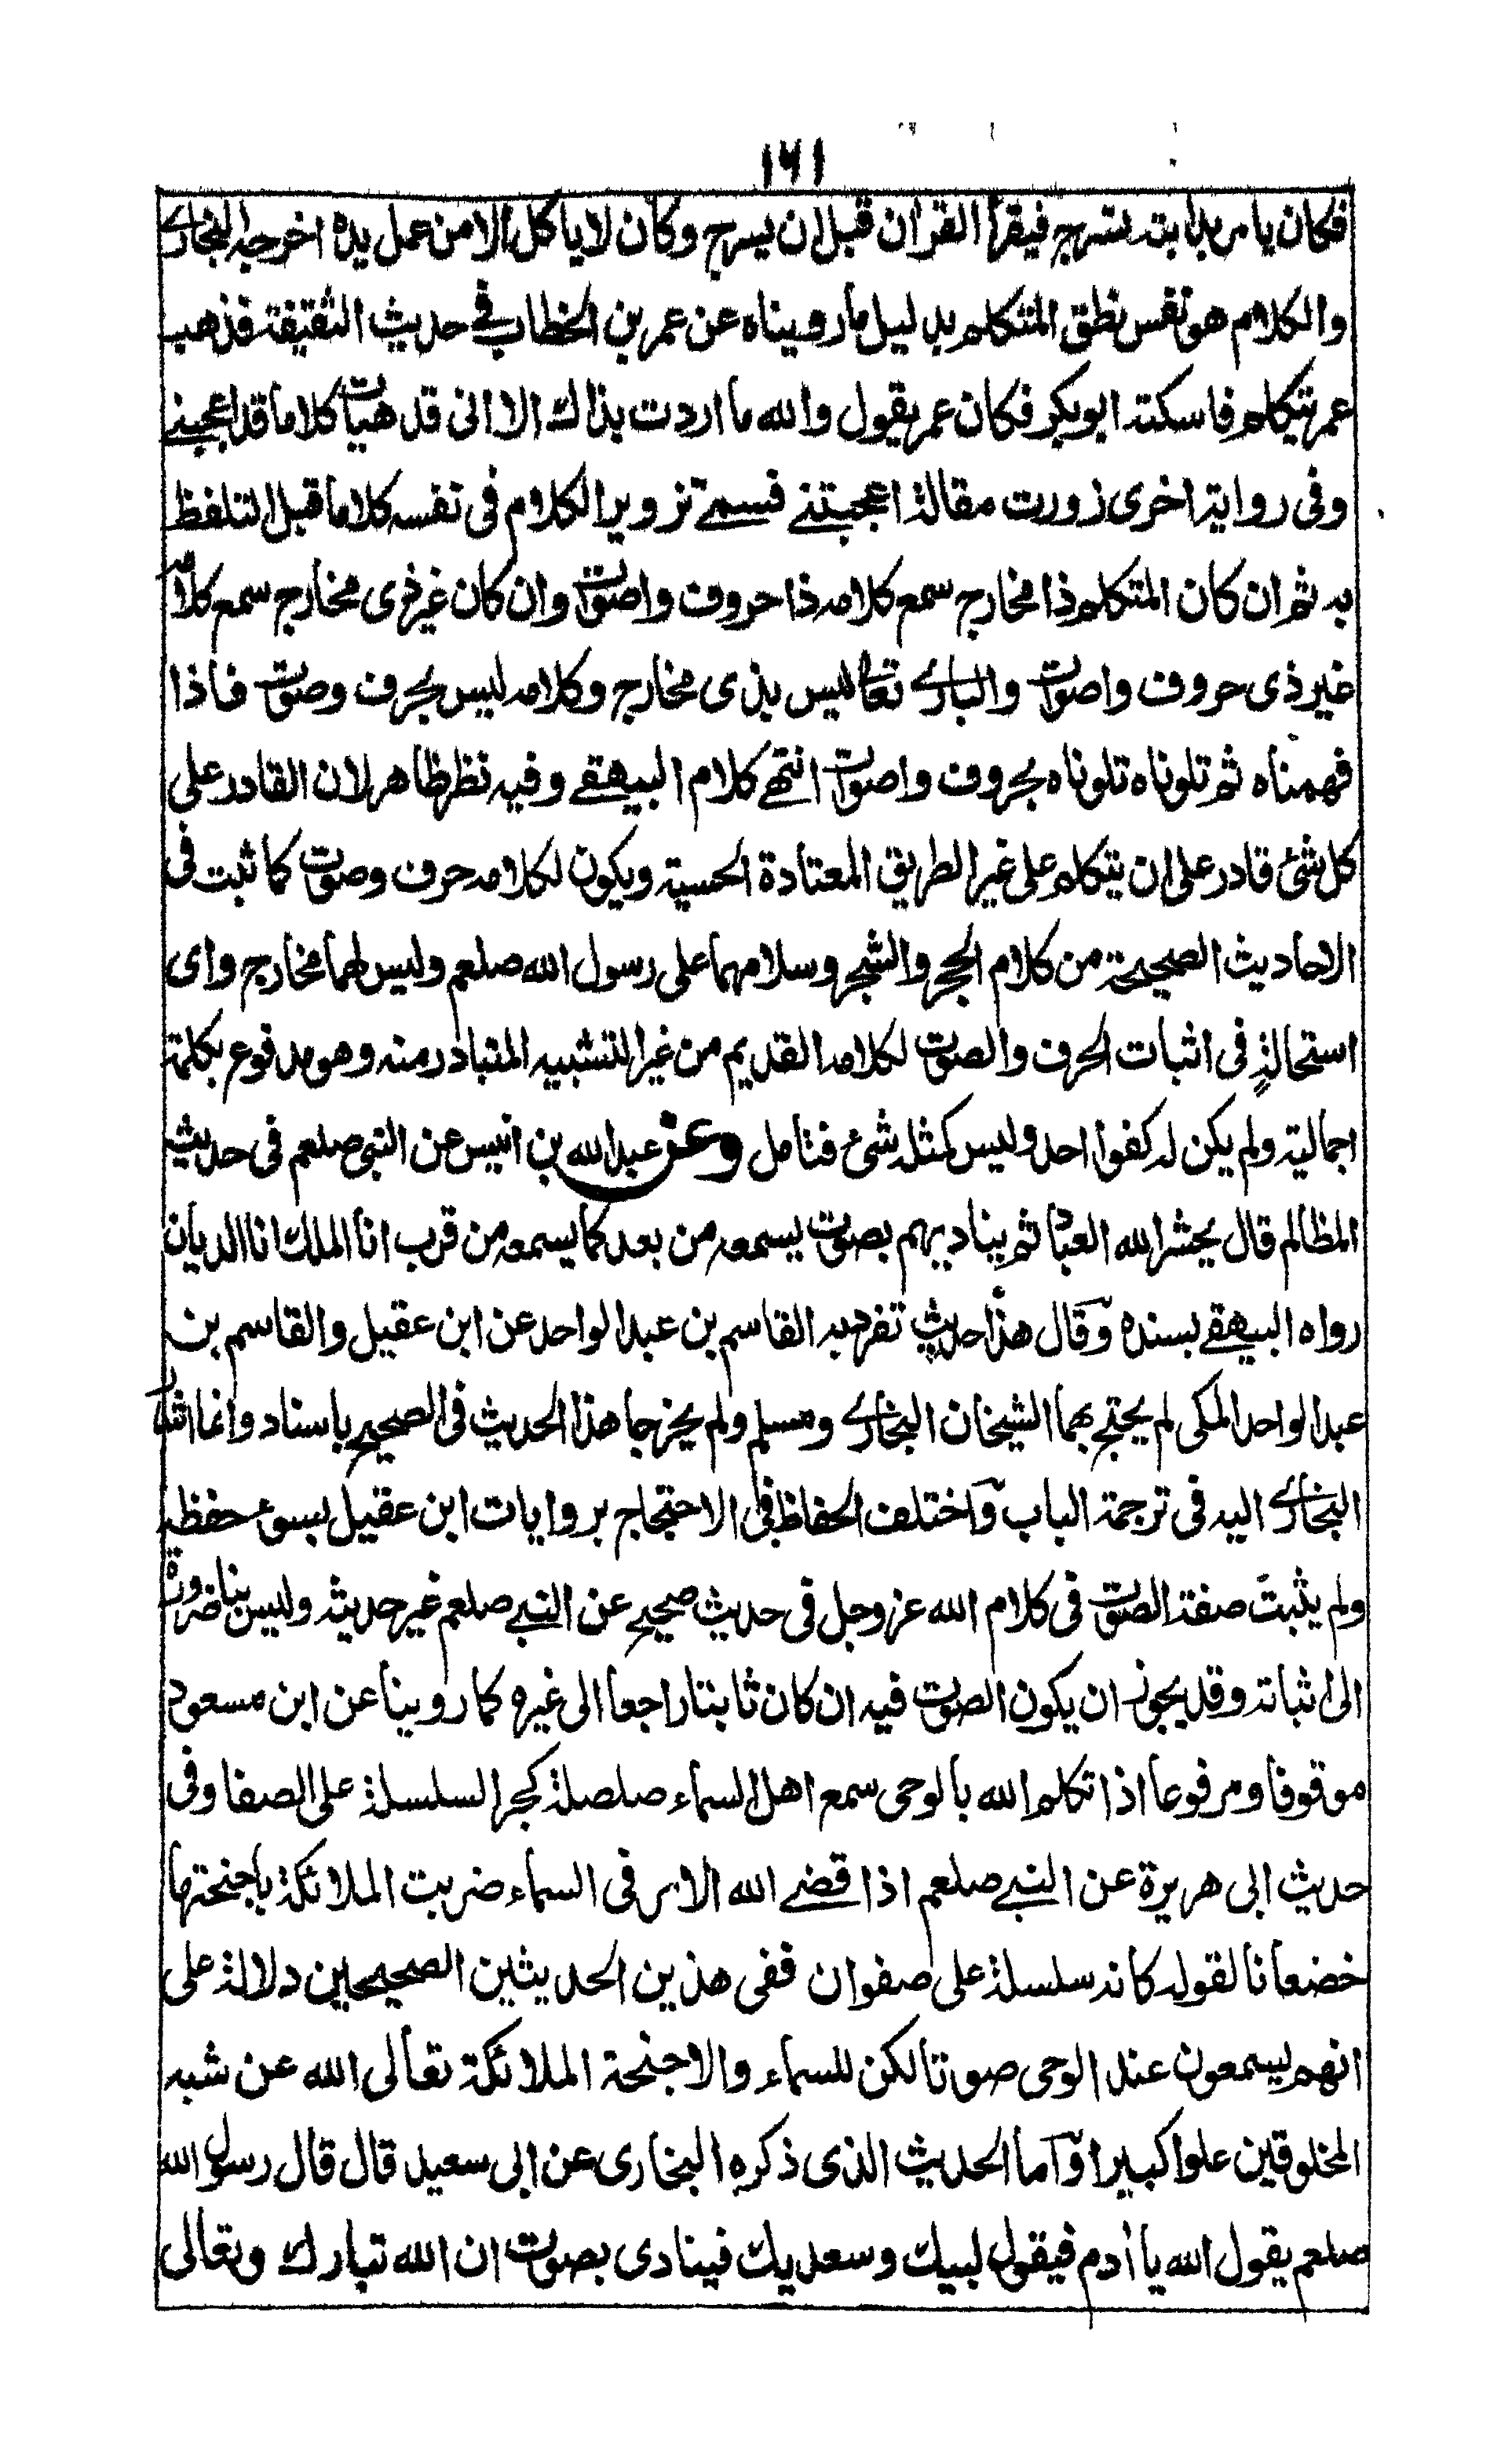 ١٦١
فكان يامر بدابته تسرج فيقرأ القرآن قبل ان يسرج وكان لا ياكل الا من عمل يده اخرجه البخارى
والكلام هو نفس نطق المتكلم بدليل ما رويناه عن عمر بن الخطاب فى حديث الثقيفة فذهب
عمر يتكلم فاسكته ابو بكر فكان عمر يقول والله ما اردت بذاك الا انى قد هيات كلاما قد اعجبنى
وفى رواية اخرى زورت مقالة اعجبتنى فسمى تزوير الكلام فى نفسه كلاما قبل التلفظ
به ثم ان كان المتكلم ذا مخارج سمع كلامه ذا حروف واصوات وان كان غير ذى مخارج سمع كلامه
غير ذى حروف واصوات والبارى تعالى ليس بذى مخارج وكلامه ليس بحرف وصوت فاذا
فهمناه ثم تلوناه تلوناه بحروف واصوات انتهى كلام البيهقى وفيه نظر ظاهر لان القادر على
كل شئ قادر على ان يتكلم على غير الطريق المعتادة الحسية ويكون لكلامه حرف وصوت كما ثبت فى
الاحاديث الصحيحة من كلام الحجر والشجر وسلامهما على رسول الله صلعم وليس لهما مخارج واى
استحالةٍ فى اثبات الحرف والصوت لكلامه القديم من غير التشبيه المتبادر منه وهو مدفوع بكلمة
اجمالية ولم يكن له كفوا احد وليس كمثله شئ فتامل وعن عبد الله بن انيس عن النبى صلعم فى حديث
المظالم قال يحشر الله العباد ثم يناديهم بصوت يسمعه من بعد كما يسمعه من قرب انا الملك انا الديان
رواه البيهقى بسنده وقال هذا حديث تفرد به القاسم بن عبد الواحد عن ابن عقيل والقاسم بن
عبد الواحد المكى لم يحتج بهما الشيخان البخارى ومسلم ولم يخرجا هذا الحديث فى الصحيح باسناد وانما اشار
البخارى اليه فى ترجمة الباب واختلف الحفاظ فى الاحتجاج بروايات ابن عقيل بسوء حفظه
ولم يثبت صفة الصوت فى كلام الله عز وجل فى حديث صحيح عن النبى صلعم غير حديثه وليس بنا ضرورة
الى اثباته وقد يجوز ان يكون الصوت فيه ان كان ثابتا راجعا الى غيره كما روينا عن ابن مسعود
موقوفا ومرفوعا اذا تكلم الله بالوحى سمع اهل السماء صلصلة كجر السلسلة على الصفا وفى
حديث ابى هريرة عن النبى صلعم اذا قضى الله الامر فى السماء ضربت الملائكة باجنحتها
خضعانا لقوله كانه سلسلة على صفوان ففى هذين الحديثين الصحيحين دلالة على
انهم يسمعون عند الوحى صوتا لكن للسماء والاجنحة الملائكة تعالى الله عن شبه
المخلوقين علوا كبيرا واما الحديث الذى ذكره البخارى عن ابى سعيد قال قال رسول الله
صلعم يقول الله يا أدم فيقول لبيك وسعديك فينادى بصوت ان الله تبارك وتعالى